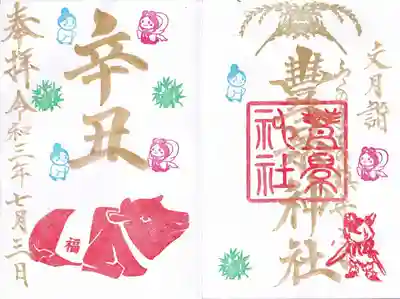 文月詣
豊景神社
豊景
神社
辛丑
奉拝 令和三年七月三日
福